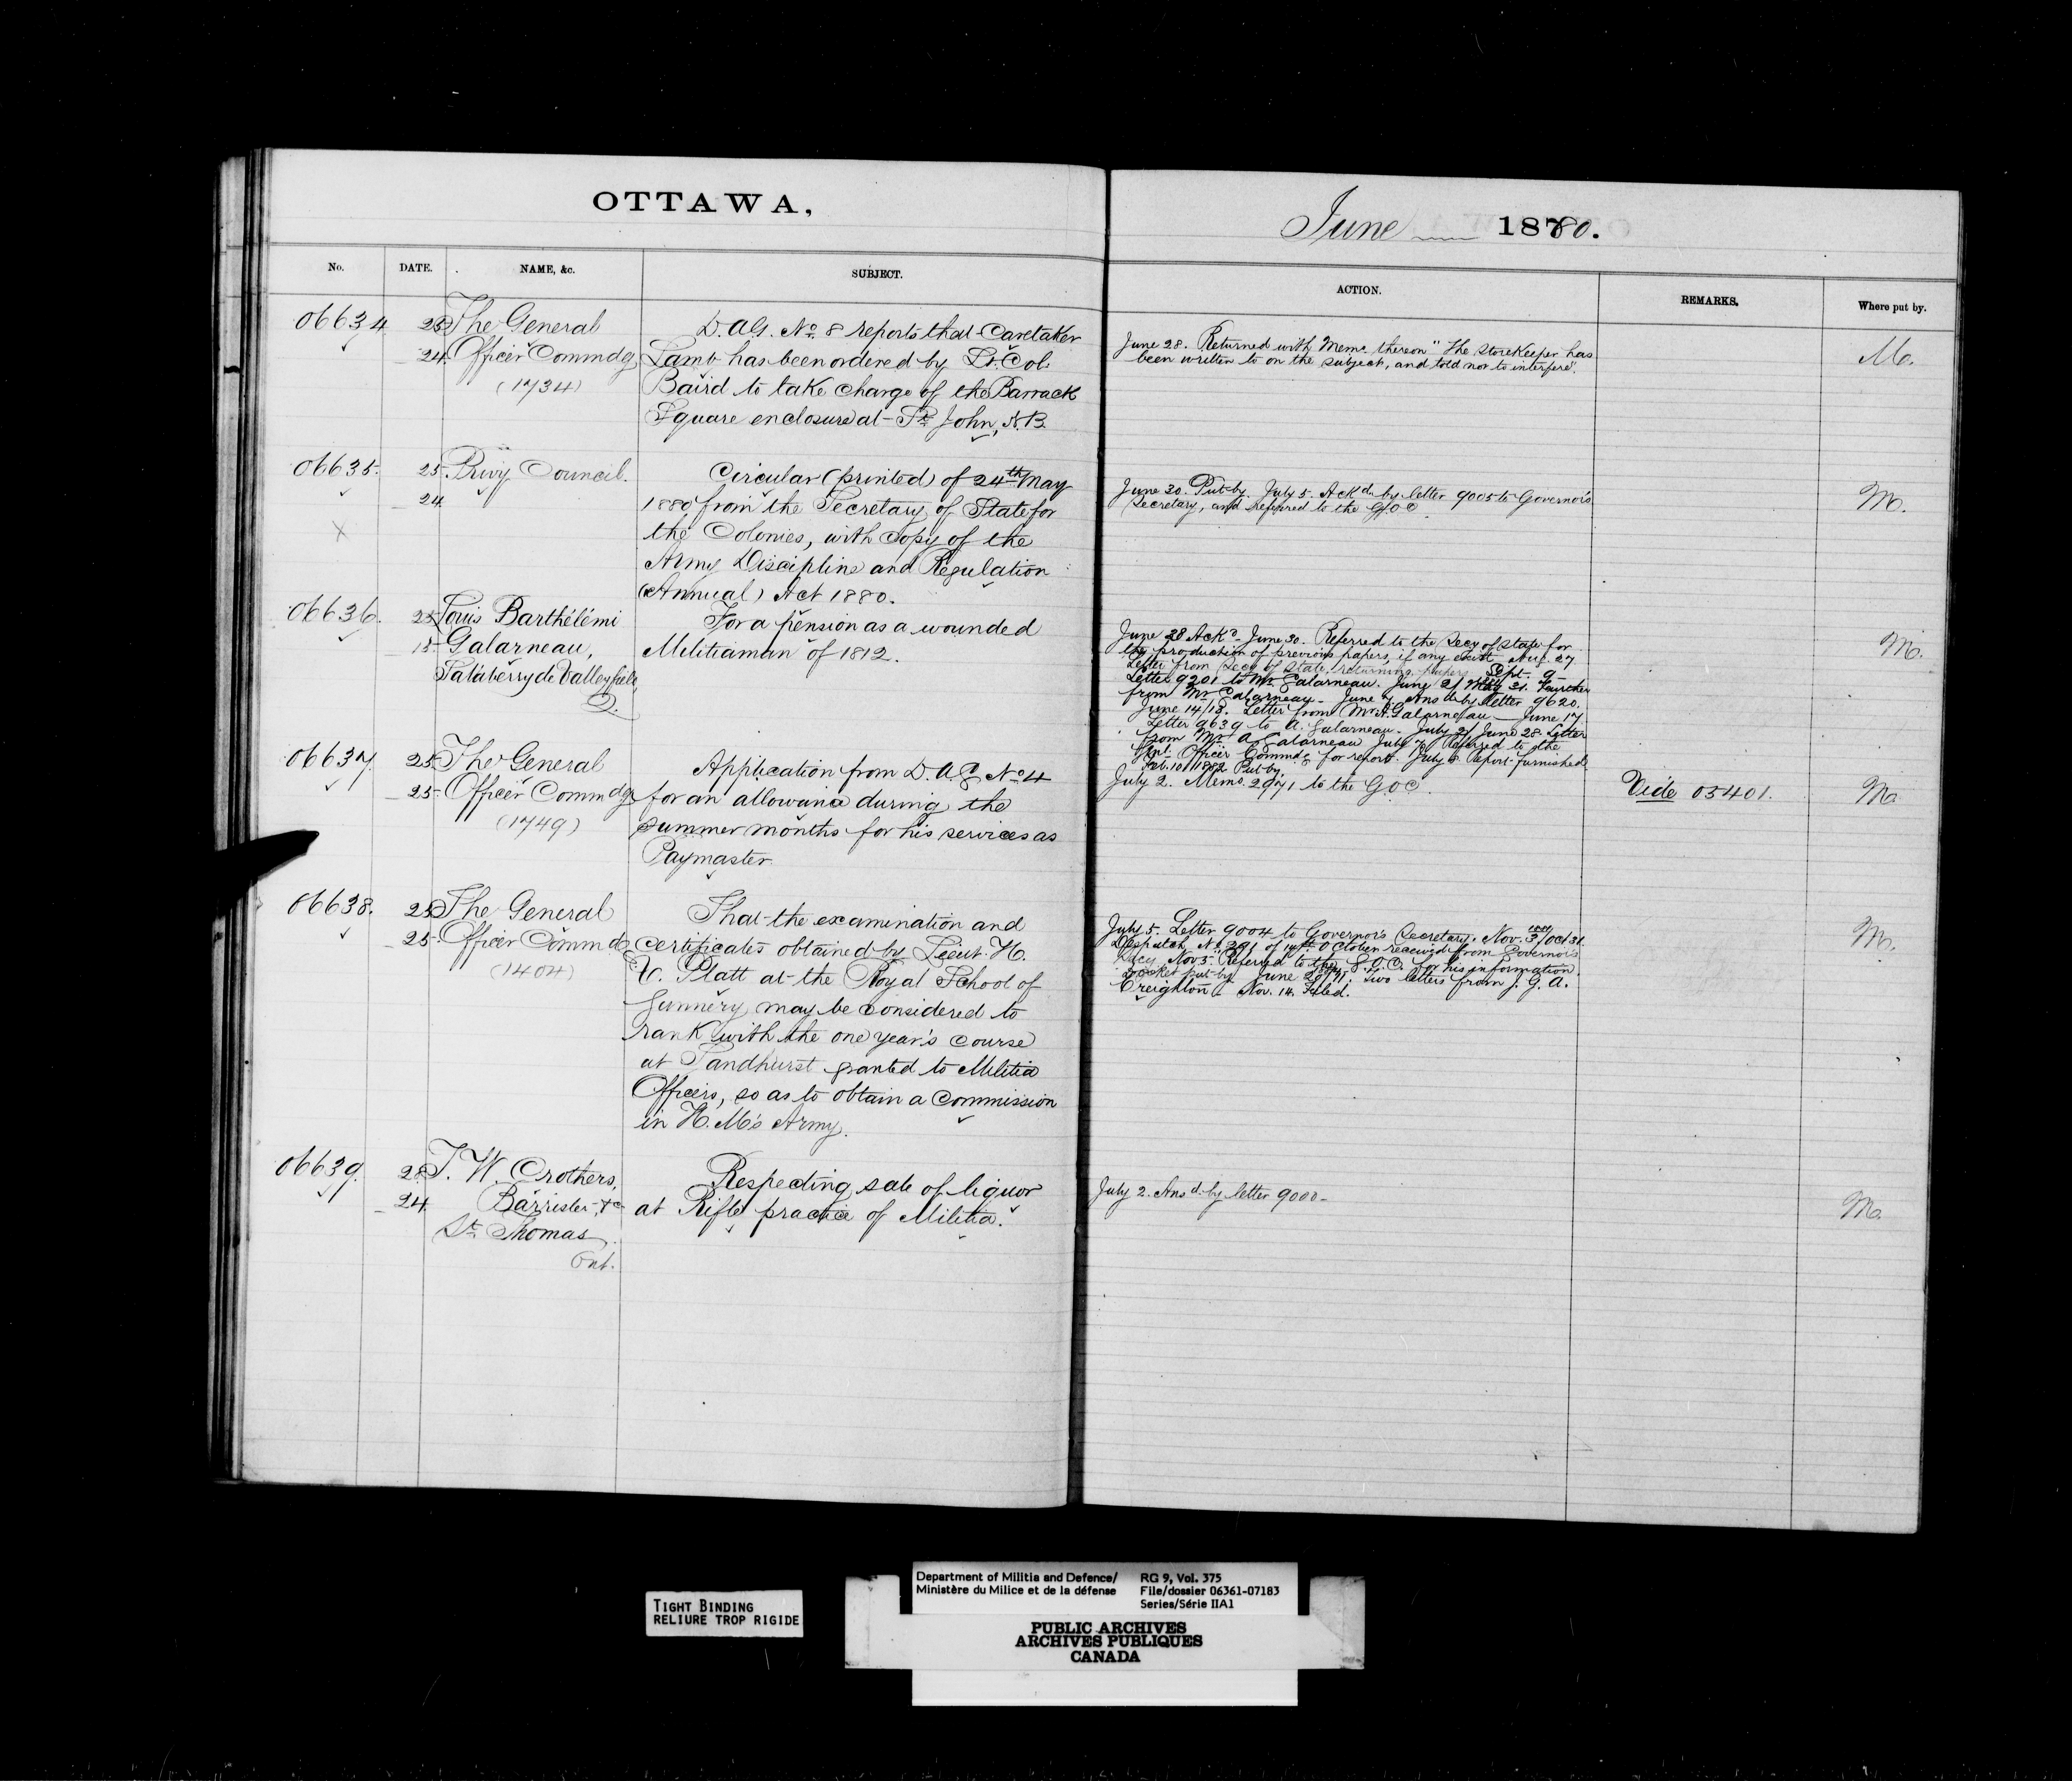 OTTAWA,
No.
DATE.
NAME, &c.
SUBJECT.
06634
25
24.
The General
Officer Commdg
(1734)
D.A.G. No. 8 reports that Caretaker
Lamb has been ordered by Lt. Col.
Baird to take charge of the Barrack
Square enclosure at St. John, N.B.
06635.
25.
24
X
Privy Council.
Circular (printed) of 24th May
1880 from the Secretary of State for
the Colonies, with copy of the
Army Discipline and Regulation
(Annual) Act 1880.
06636.
25
15
Louis Barthélémi
Galarneau,
Salaberry de Valleyfield,
Q.
For a pension as a wounded
Militiaman of 1812.
06637.
25
25.
The General
Officer Commdg
(1749)
Application from D.A.G. No 4
for an allowance during the
summer months for his services as
Paymaster.
06638.
25
25.
The General
Officer Commdg
(1404)
That the examination and
certificates obtained by Lieut. H.
V. Platt at the Royal School of
Gunnery may be considered to
rank with the one year's course
at Sandhurst granted to Militia
Officers, so as to obtain a Commission
in H.M's Army.
06639.
28
24.
T. W. Crothers,
Barrister, &c
St. Thomas
Ont.
Respecting sale of liquor
at Rifle practice of Militia.
June 1880.
ACTION.
REMARKS.
Where put by.
June 28. Returned with Memo. thereon "The Storekeeper has
been written to on the subject, and told not to interfere".
M.
June 30. Put-by. July 5. Ackd. by letter 9005 to Governor's
Secretary, and referred to the G.O.C.
M.
June 28 Ackd. June 30. Referred to the Secy of State for
the production of previous papers, if any exist. Aug. 27
Letter from Secy of State, returning papers. Sept. 9
Letter 9201 to Mr. Galarneau. June 2/ May 31. Further
from Mr Galarneau. June 7 Ansd by letter 9620.
June 14/13. Letter from Mr. A. Galarneau June 17.
Letter 9639 to A. Galarneau. July 2/ June 28 Letter
from Mr A Galarneau July 7. Referred to the
Genl. Officer Commdg. for report. July 8 Report furnished
Feb. 10/1882 Put by.
M.
July 2. Memo. 2971 to the GOC.
Vide 05401.
M.
July 5. Letter 9004 to Governor's Secretary. Nov. 3/Oct 31.
Despatch No 291 of 14th October received from Governor's
Secy Nov 5. Referred to the G.O.C. for his information.
Docket put-by June Two letters from J. G. A.
Creighton. Nov. 14. Filed.
M.
July 2. Ansd. by letter 9000.
M.
TIGHT BINDING
RELIURE TROP RIGIDE
Department of Militia and Defence/
Ministère du Milice et de la défense
RG 9, Vol. 375
File/dossier 06361-07183
Series/Série IIA1
PUBLIC ARCHIVES
ARCHIVES PUBLIQUES
CANADA